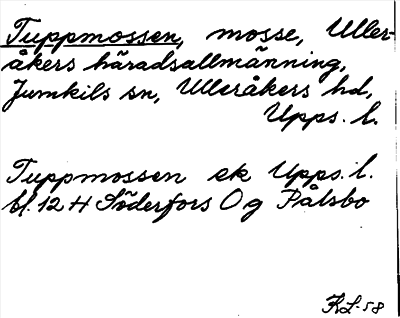 Tuppmossen, mosse, Uller-
åkers häradsallmänning,
Jumkils sn, Ulleråkers hd,
Upps. l.
Tuppmossen ek Upps. l.
bl. 12 H Söderfors O g Pålsbo
KL-58